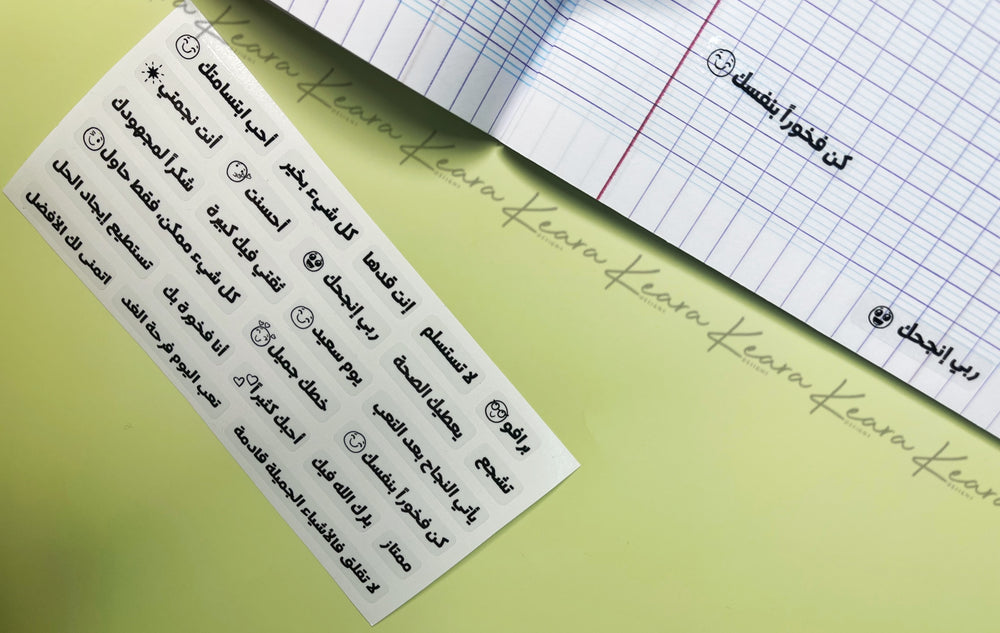 أحب ابتسامتك
أنت نجمتي
شكراً لمجهودك
كل شيء ممكن، فقط حاول
تستطيع إيجاد الحل
اتمنى لك الأفضل
كل شيء بخير
أحسنت
ثقتي فيك كبيرة
إنت قدها
ربي إنجحك
يوم سعيد
خطك جميل
أنا فخورة بك
تعب اليوم فرحة الغد
لا تستسلم
يعطيك الصحة
أحبك كثيراً
برافو
تشجع
يأتي النجاح بعد التعب
كن فخوراً بنفسك
بارك الله فيك
ممتاز
لا تقلق فالأشياء الجميلة قادمة
كن فخوراً بنفسك
ربي إنجحك
Keara Keara Keara Keara Keara Keara Keara Keara Keara
DESIGNS